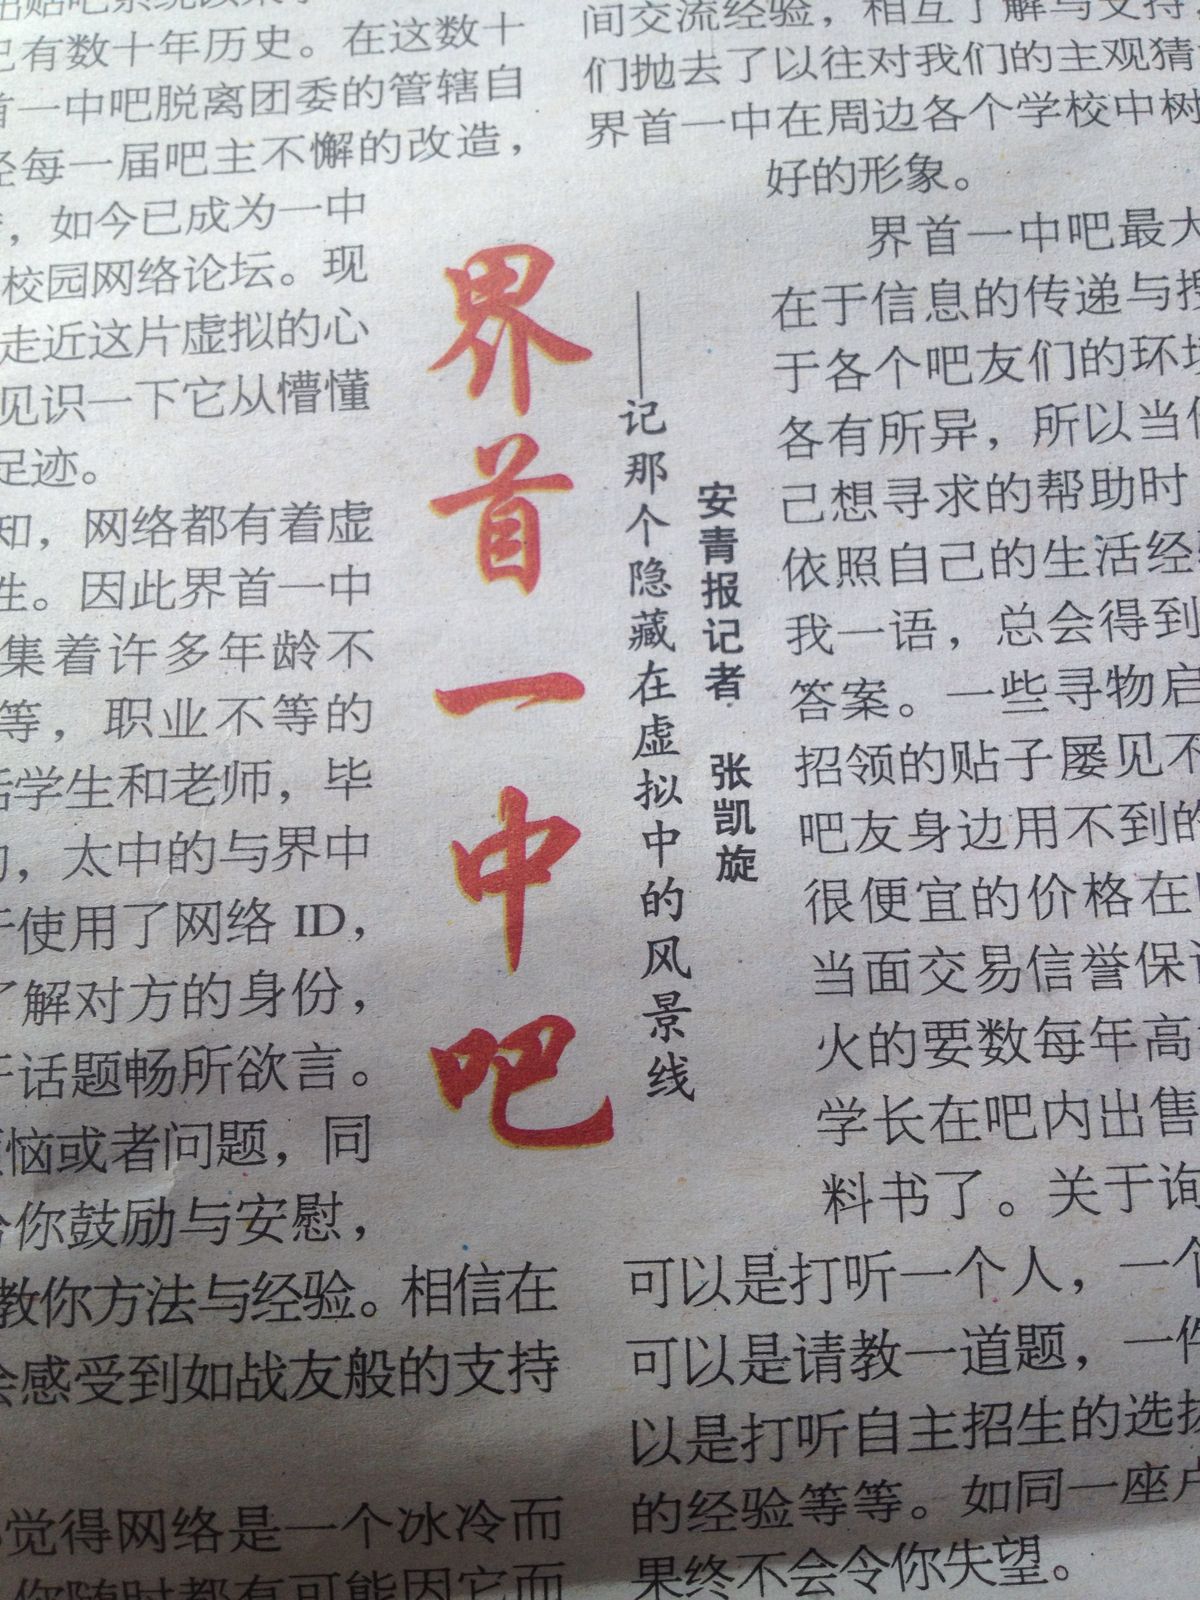 已有数十年历史。在这数十
首一中吧脱离团委的管辖自
经每一届吧主不懈的改造，
，如今已成为一中
校园网络论坛。现
走近这片虚拟的心
见识一下它从懵懂
足迹。
知，网络都有着虚
性。因此界首一中
集着许多年龄不
等，职业不等的
括学生和老师，毕
，太中的与界中
于使用了网络 ID，
了解对方的身份，
于话题畅所欲言。
烦恼或者问题，同
给你鼓励与安慰，
教你方法与经验。相信在
会感受到如战友般的支持
觉得网络是一个冰冷而
你随时都有可能因它而
界首一中吧
——记那个隐藏在虚拟中的风景线
安青报记者 张凯旋
间交流经验，相互了解与支持，
们抛去了以往对我们的主观猜
界首一中在周边各个学校中树
好的形象。
界首一中吧最大
在于信息的传递与搜
于各个吧友们的环境
各有所异，所以当你
己想寻求的帮助时
依照自己的生活经验
我一语，总会得到
答案。一些寻物启
招领的贴子屡见不
吧友身边用不到的
很便宜的价格在
当面交易信誉保证
火的要数每年高
学长在吧内出售
料书了。关于询
可以是打听一个人，一个
可以是请教一道题，一件
以是打听自主招生的选拔
的经验等等。如同一座
果终不会令你失望。